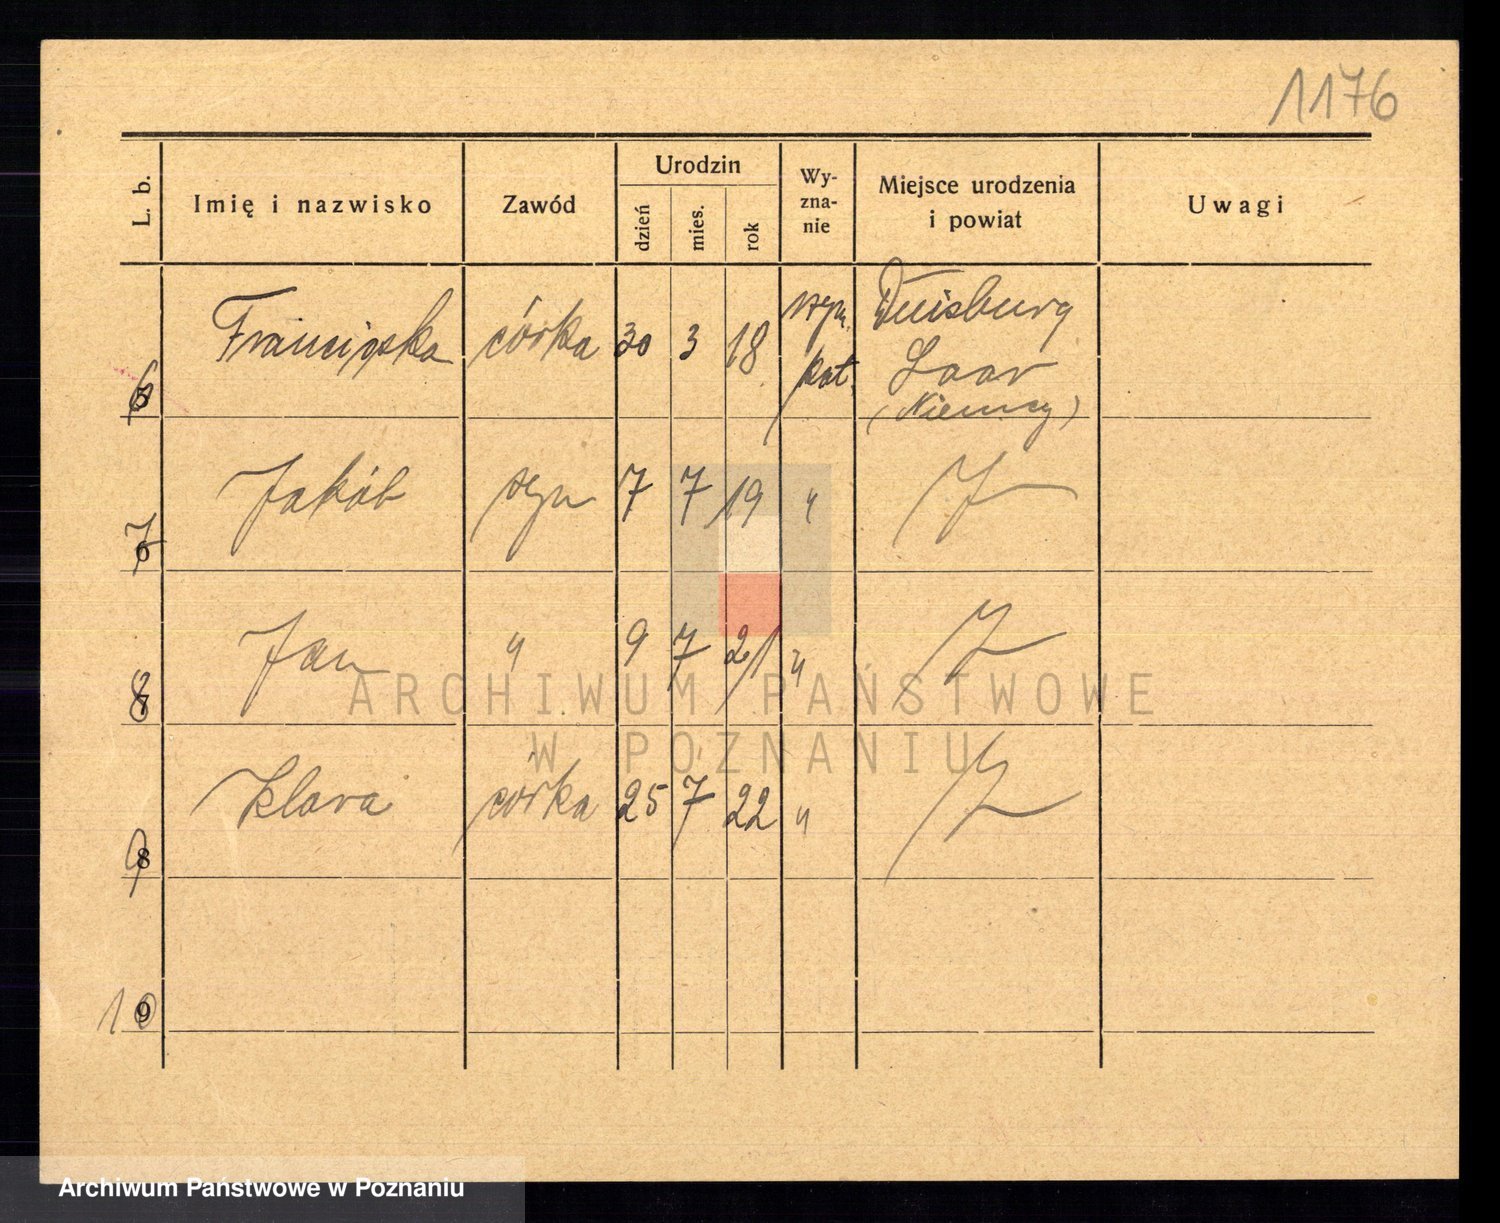 1176
L. b.
Imię i nazwisko
Zawód
Urodzin
dzień
mies.
rok
Wy-
zna-
nie
Miejsce urodzenia
i powiat
Uwagi
6 Franciszka córka 30 3 18 rzym. Duisburg
kat. Laar
(Niemcy)
7 Jakób syn 7 7 19 "
8 Jan " 9 7 21 "
9 Klara córka 25 7 22 "
10
ARCHIWUM PAŃSTWOWE
W POZNANIU
Archiwum Państwowe w Poznaniu